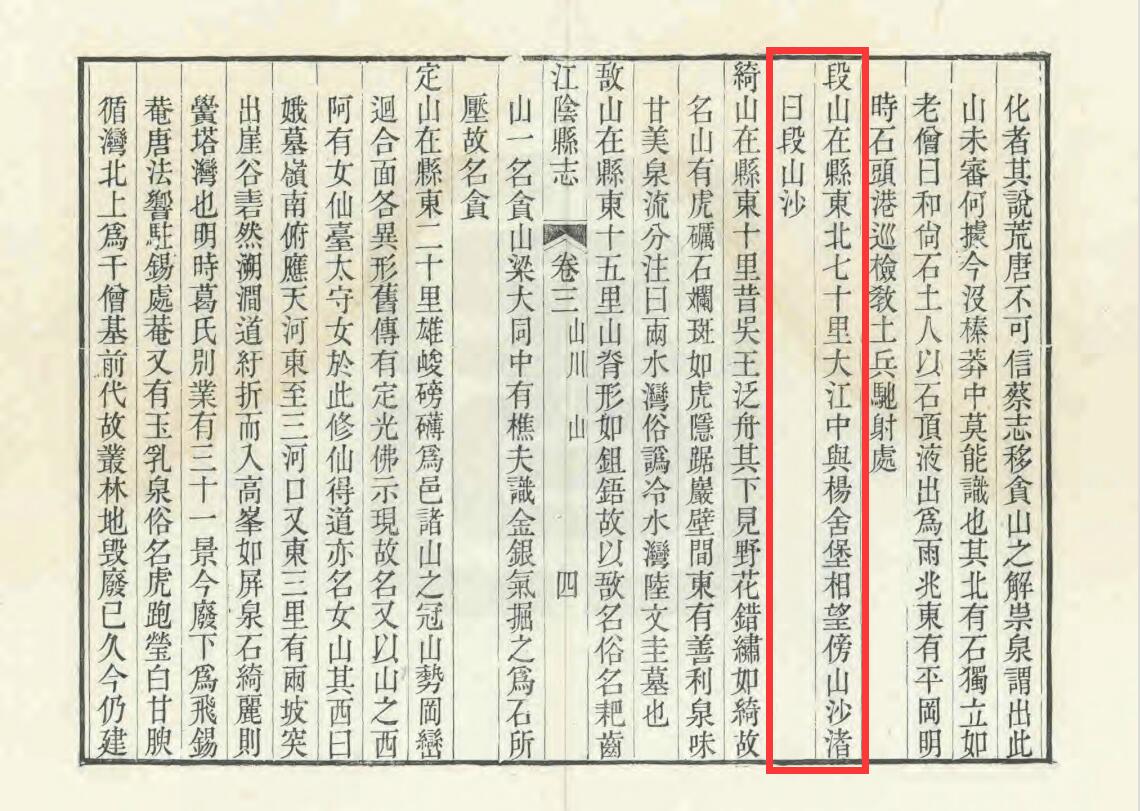 化者其說荒唐不可信蔡志移貪山之解祟泉謂出此
山未審何據今沒榛莽中莫能識也其北有石獨立如
老僧曰和尙石土人以石頂液出爲雨兆東有平岡明
時石頭港巡檢敎土兵馳射處
段山在縣東北七十里大江中與楊舍堡相望傍山沙渚
曰段山沙
綺山在縣東十里昔吳王泛舟其下見野花錯繡如綺故
名山有虎礪石斕斑如虎隱踞巖壁間東有善利泉味
甘美泉流分注曰兩水灣俗譌冷水灣陸文圭墓也
敔山在縣東十五里山脊形如鉏鋙故以敔名俗名耙齒
江陰縣志 卷三 山川 山 四
山一名貪山梁大同中有樵夫識金銀氣掘之爲石所
壓故名貪
定山在縣東二十里雄峻磅礴爲邑諸山之冠山勢岡巒
迴合面各異形舊傳有定光佛示現故名又以山之西
阿有女仙臺太守女於此修仙得道亦名女山其西曰
娥墓嶺南俯應天河東至三河口又東三里有兩坡突
出崖谷砉然溯澗道紆折而入高峯如屏泉石綺麗則
黌塔灣也明時葛氏別業有三十一景今廢下爲飛錫
菴唐法響駐錫處菴又有玉乳泉俗名虎跑瑩白甘腴
循灣北上爲千僧基前代故叢林地毀廢已久今仍建